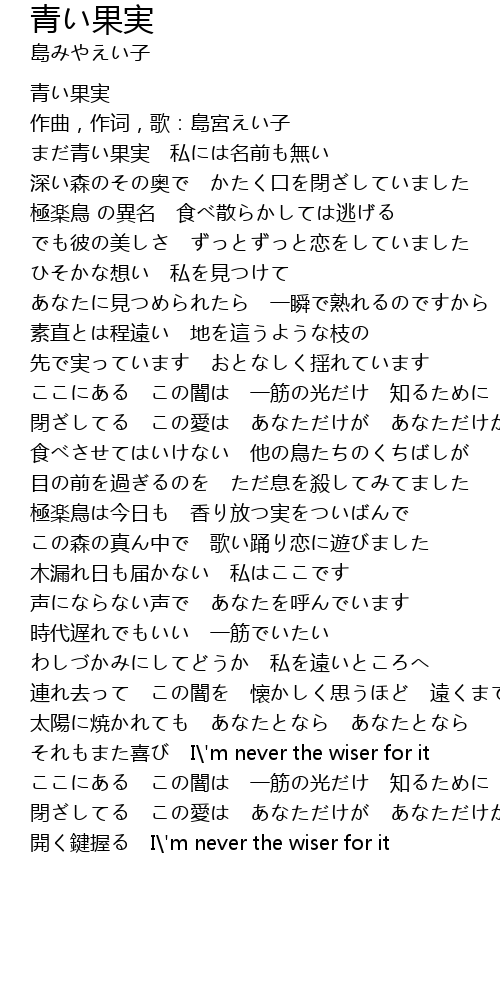 青い果実
島みやえい子
青い果実
作曲，作词，歌：島宮えい子
まだ青い果実　私には名前も無い
深い森のその奥で　かたく口を閉ざしていました
極楽鳥 の異名　食べ散らかしては逃げる
でも彼の美しさ　ずっとずっと恋をしていました
ひそかな想い　私を見つけて
あなたに見つめられたら　一瞬で熟れるのですから
素直とは程遠い　地を這うような枝の
先で実っています　おとなしく揺れています
ここにある　この闇は　一筋の光だけ　知るために
閉ざしてる　この愛は　あなただけが　あなただけが
食べさせてはいけない　他の鳥たちのくちばしが
目の前を過ぎるのを　ただ息を殺してみてました
極楽鳥は今日も　香り放つ実をついばんで
この森の真ん中で　歌い踊り恋に遊びました
木漏れ日も届かない　私はここです
声にならない声で　あなたを呼んでいます
時代遅れでもいい　一筋でいたい
わしづかみにしてどうか　私を遠いところへ
連れ去って　この闇を　懐かしく思うほど　遠くまで
太陽に焼かれても　あなたとなら　あなたとなら
それもまた喜び　I\'m never the wiser for it
ここにある　この闇は　一筋の光だけ　知るために
閉ざしてる　この愛は　あなただけが　あなただけが
開く鍵握る　I\'m never the wiser for it